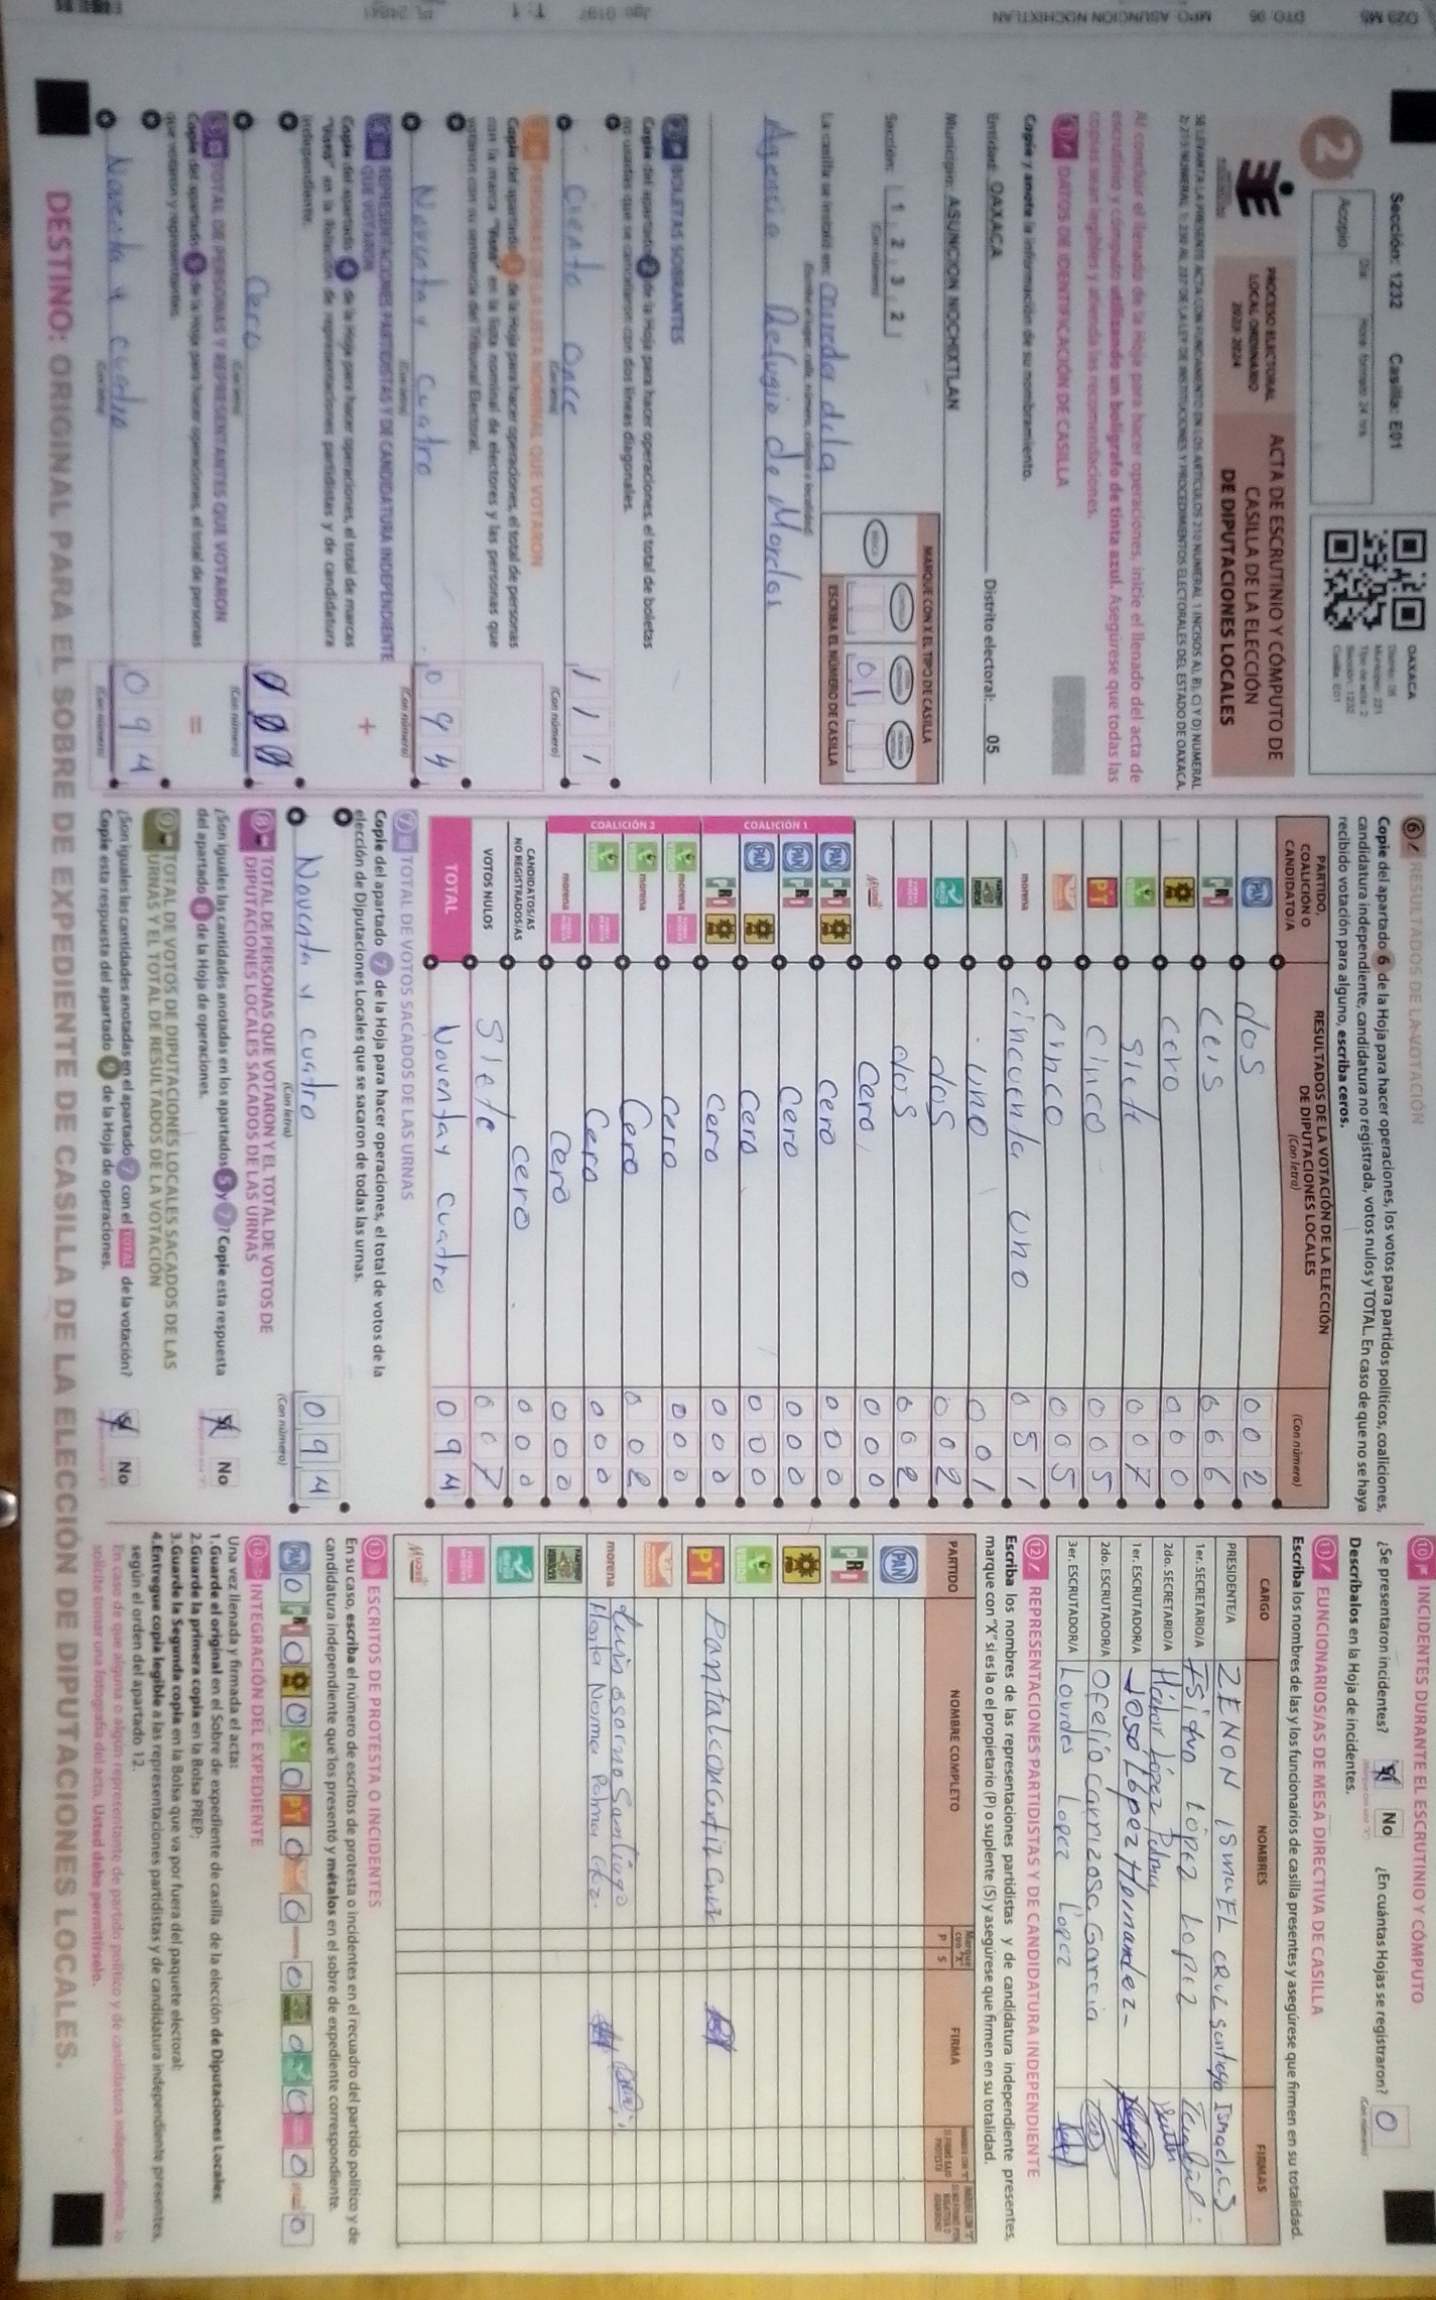 Sección: 1232 Casilla: E01
2
Día Hora formato 24 hrs
Acopio
OAXACA
Distrito: 05
Municipio: 221
Sección: 1232
Casilla: E01
PROCESO ELECTORAL
LOCAL ORDINARIO
2023-2024
ACTA DE ESCRUTINIO Y CÓMPUTO DE
CASILLA DE LA ELECCIÓN
DE DIPUTACIONES LOCALES
Al concluir el llenado de la Hoja para hacer operaciones, inicie el llenado del acta de
escrutinio y cómputo utilizando un bolígrafo de tinta azul. Asegúrese que todas las
copias sean legibles y atienda las recomendaciones.
DATOS DE IDENTIFICACIÓN DE CASILLA
Copie y anote la información de su nombramiento.
Entidad: OAXACA Distrito electoral: 05
Municipio: ASUNCION NOCHIXTLAN
Sección: 1 2 3 2
(Con número)
MARQUE CON X EL TIPO DE CASILLA
01
ESCRIBA EL NÚMERO DE CASILLA
La casilla se instaló en:
Agencia Refugio de Morelos
BOLETAS SOBRANTES
Copie del apartado 2 de la Hoja para hacer operaciones, el total de boletas
no usadas que se cancelaron con dos líneas diagonales.
Ciento Once 111
(Con número)
PERSONAS DE LA LISTA NOMINAL QUE VOTARON
Copie del apartado 3 de la Hoja para hacer operaciones, el total de personas
con la marca "Votó" en la lista nominal de electores y las personas que
votaron con su sentencia del Tribunal Electoral.
Noventa y Cuatro 094
(Con número)
REPRESENTACIONES PARTIDISTAS Y DE CANDIDATURA INDEPENDIENTE
QUE VOTARON
Copie del apartado 4 de la Hoja para hacer operaciones, el total de marcas
"Votó" en la Relación de representaciones partidistas y de candidatura
independiente.
+
Cero 000
(Con número)
TOTAL DE PERSONAS Y REPRESENTANTES QUE VOTARON
Copie del apartado 5 de la Hoja para hacer operaciones, el total de personas
que votaron y representantes.
=
Noventa y cuatro 094
(Con número)
6 RESULTADOS DE LA VOTACIÓN
Copie del apartado 6 de la Hoja para hacer operaciones, los votos para partidos políticos, coaliciones,
candidatura independiente, candidatura no registrada, votos nulos y TOTAL. En caso de que no se haya
recibido votación para alguno, escriba ceros.
PARTIDO, COALICIÓN O CANDIDATO/A
RESULTADOS DE LA VOTACIÓN DE LA ELECCIÓN DE DIPUTACIONES LOCALES
(Con letra) (Con número)
PAN dos 002
PRI ceis 006
cero 000
VERDE Siete 007
PT Cinco 005
Cinco 005
morena cincuenta uno 051
uno 001
dos 002
dos 002
Mujer Cero 000
COALICIÓN 1
PAN PRI cero 000
PAN PRI Cero 000
PAN Cero 000
PRI Cero 000
COALICIÓN 2
VERDE morena Cero 000
VERDE morena Cero 002
VERDE Cero 000
morena Cero 000
CANDIDATOS/AS NO REGISTRADOS/AS cero 000
VOTOS NULOS Siete 007
TOTAL Noventa y cuatro 094
7 TOTAL DE VOTOS SACADOS DE LAS URNAS
Copie del apartado 7 de la Hoja para hacer operaciones, el total de votos de la
elección de Diputaciones Locales que se sacaron de todas las urnas.
Noventa y cuatro 094
(Con letra) (Con número)
8 TOTAL DE PERSONAS QUE VOTARON Y EL TOTAL DE VOTOS DE
DIPUTACIONES LOCALES SACADOS DE LAS URNAS
¿Son iguales las cantidades anotadas en los apartados 5 y 7? Copie esta respuesta
del apartado 8 de la Hoja de operaciones.
Sí No
9 TOTAL DE VOTOS DE DIPUTACIONES LOCALES SACADOS DE LAS
URNAS Y EL TOTAL DE RESULTADOS DE LA VOTACIÓN
¿Son iguales las cantidades anotadas en el apartado 7 con el TOTAL de la votación?
Copie esta respuesta del apartado 9 de la Hoja de operaciones.
Sí No
10 INCIDENTES DURANTE EL ESCRUTINIO Y CÓMPUTO
¿Se presentaron incidentes? Sí No ¿En cuántas Hojas se registraron? 0
Descríbalos en la Hoja de incidentes.
11 FUNCIONARIOS/AS DE MESA DIRECTIVA DE CASILLA
Escriba los nombres de las y los funcionarios de casilla presentes y asegúrese que firmen en su totalidad.
CARGO NOMBRES FIRMAS
PRESIDENTE/A ZENON ISMAEL CRUZ Santiago
1er. SECRETARIO/A López Lopez
2do. SECRETARIO/A López Palma
1er. ESCRUTADOR/A José López Hernandez
2do. ESCRUTADOR/A Ofelia Carrizosa Garcia
3er. ESCRUTADOR/A Lourdes Lopez Lopez
12 REPRESENTACIONES PARTIDISTAS Y DE CANDIDATURA INDEPENDIENTE
Escriba los nombres de las representaciones partidistas y de candidatura independiente presentes,
marque con "X" si es la o el propietario (P) o suplente (S) y asegúrese que firmen en su totalidad.
PARTIDO NOMBRE COMPLETO P S FIRMA
PAN
PRI
VERDE
PT
morena Luis Osorno Santiago
María Norma Palma
Mujer
13 ESCRITOS DE PROTESTA O INCIDENTES
En su caso, escriba el número de escritos de protesta o incidentes en el recuadro del partido político y de
candidatura independiente que los presentó y métalos en el sobre de expediente correspondiente.
PAN 0 PRI 0 0 0 PT 0 0 0 0 0 0 0 0
14 INTEGRACIÓN DEL EXPEDIENTE
Una vez llenada y firmada el acta:
1. Guarde el original en el Sobre de expediente de casilla de la elección de Diputaciones Locales;
2. Guarde la primera copia en la Bolsa PREP;
3. Guarde la Segunda copia en la Bolsa que va por fuera del paquete electoral;
4. Entregue copia legible a las representaciones partidistas y de candidatura independiente presentes,
según el orden del apartado 12.
En caso de que alguna o algún representante de partido político y de candidatura independiente, lo
solicite tomar una fotografía del acta. Usted debe permitírselo.
DESTINO: ORIGINAL PARA EL SOBRE DE EXPEDIENTE DE CASILLA DE LA ELECCIÓN DE DIPUTACIONES LOCALES.